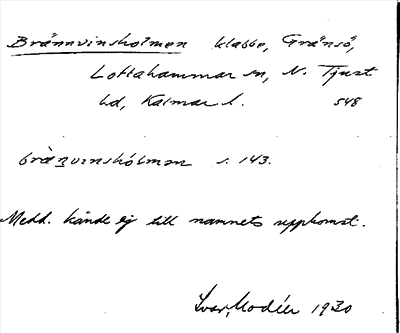 Brännvinsholmen klabbe, Gränsö,
Loftahammar sn, N. Tjust
hd, Kalmar l. 548
bränvinshólmen s. 143.
Medd. kände ej till namnets uppkomst.
Ivar Modéer 1930